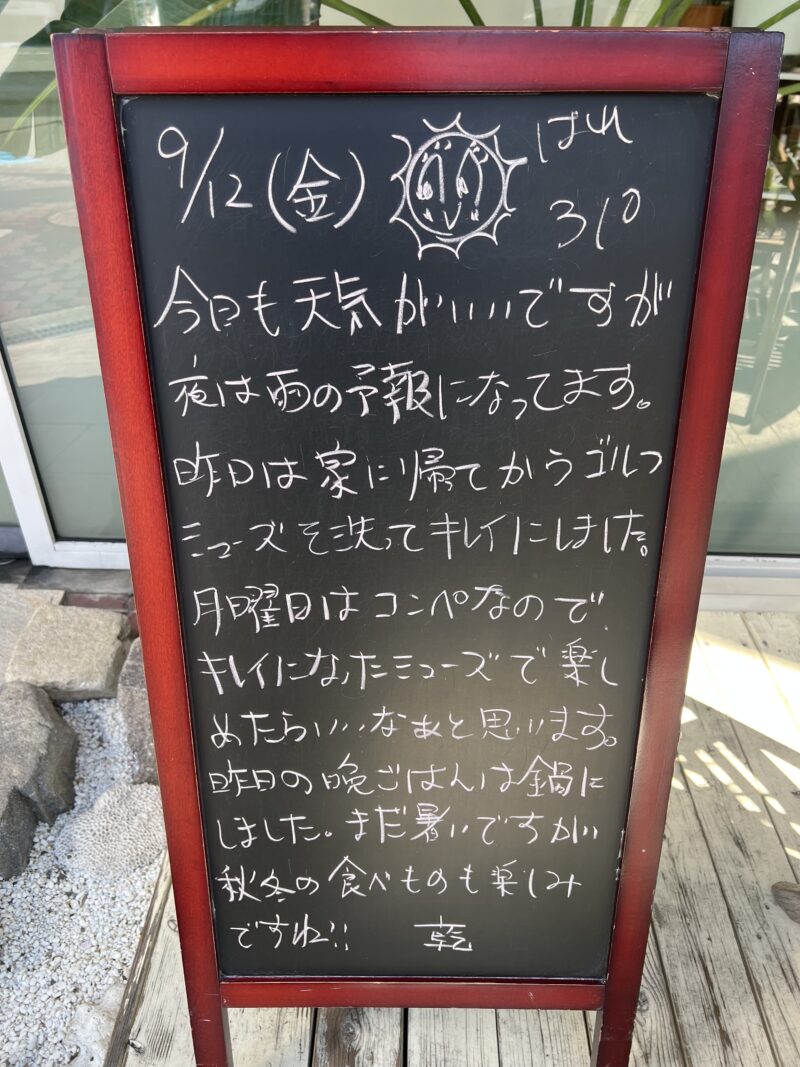 9/12(金) はれ
31°
今日も天気がいいですが
夜は雨の予報になってます。
昨日は家に帰ってからゴルフ
シューズを洗ってキレイにしました。
月曜日はコンペなので、
キレイになったシューズで楽し
めたらいいなぁと思います。
昨日の晩ごはんは鍋に
しました。まだ暑いですが
秋冬の食べものも楽しみ
ですね!! 乾